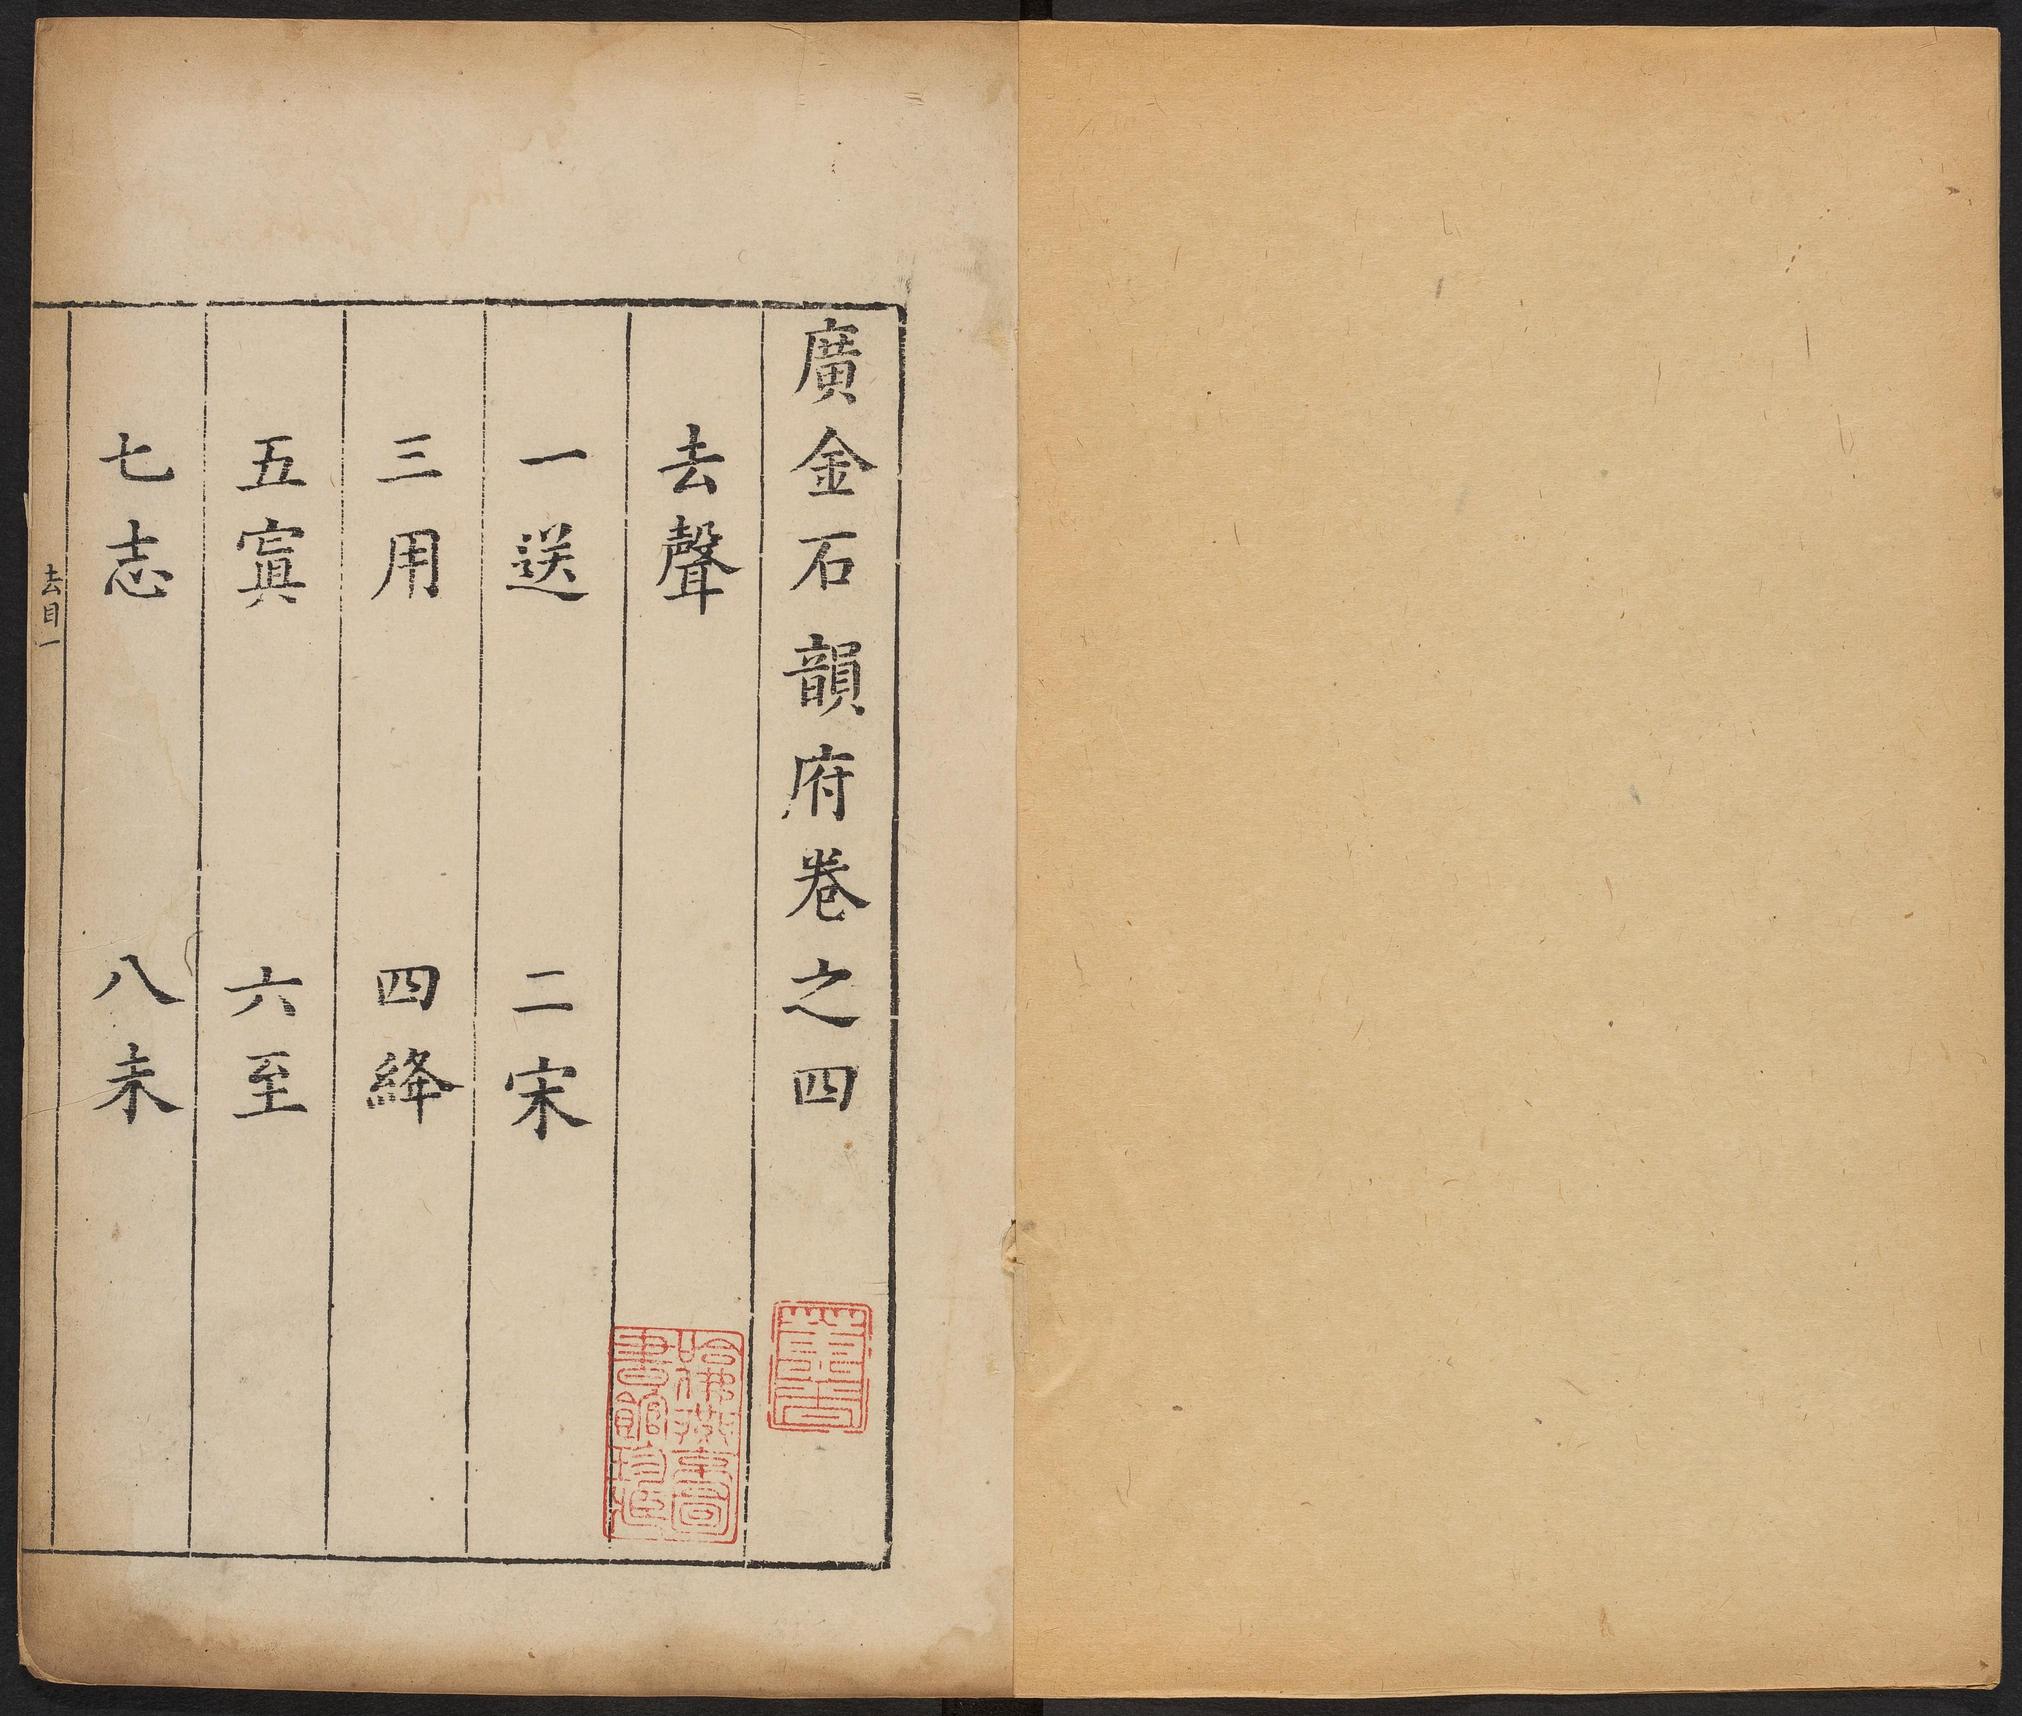 廣金石韻府卷之四
去聲
一送　二宋
三用　四絳
五寘　六至
七志　八未
去目一
哈佛燕京圖
書館珍藏